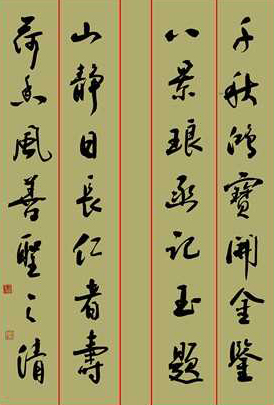 千秋鴻寶開金鑒
八景琅函記玉題
山靜日長仁者壽
荷香風善聖之清